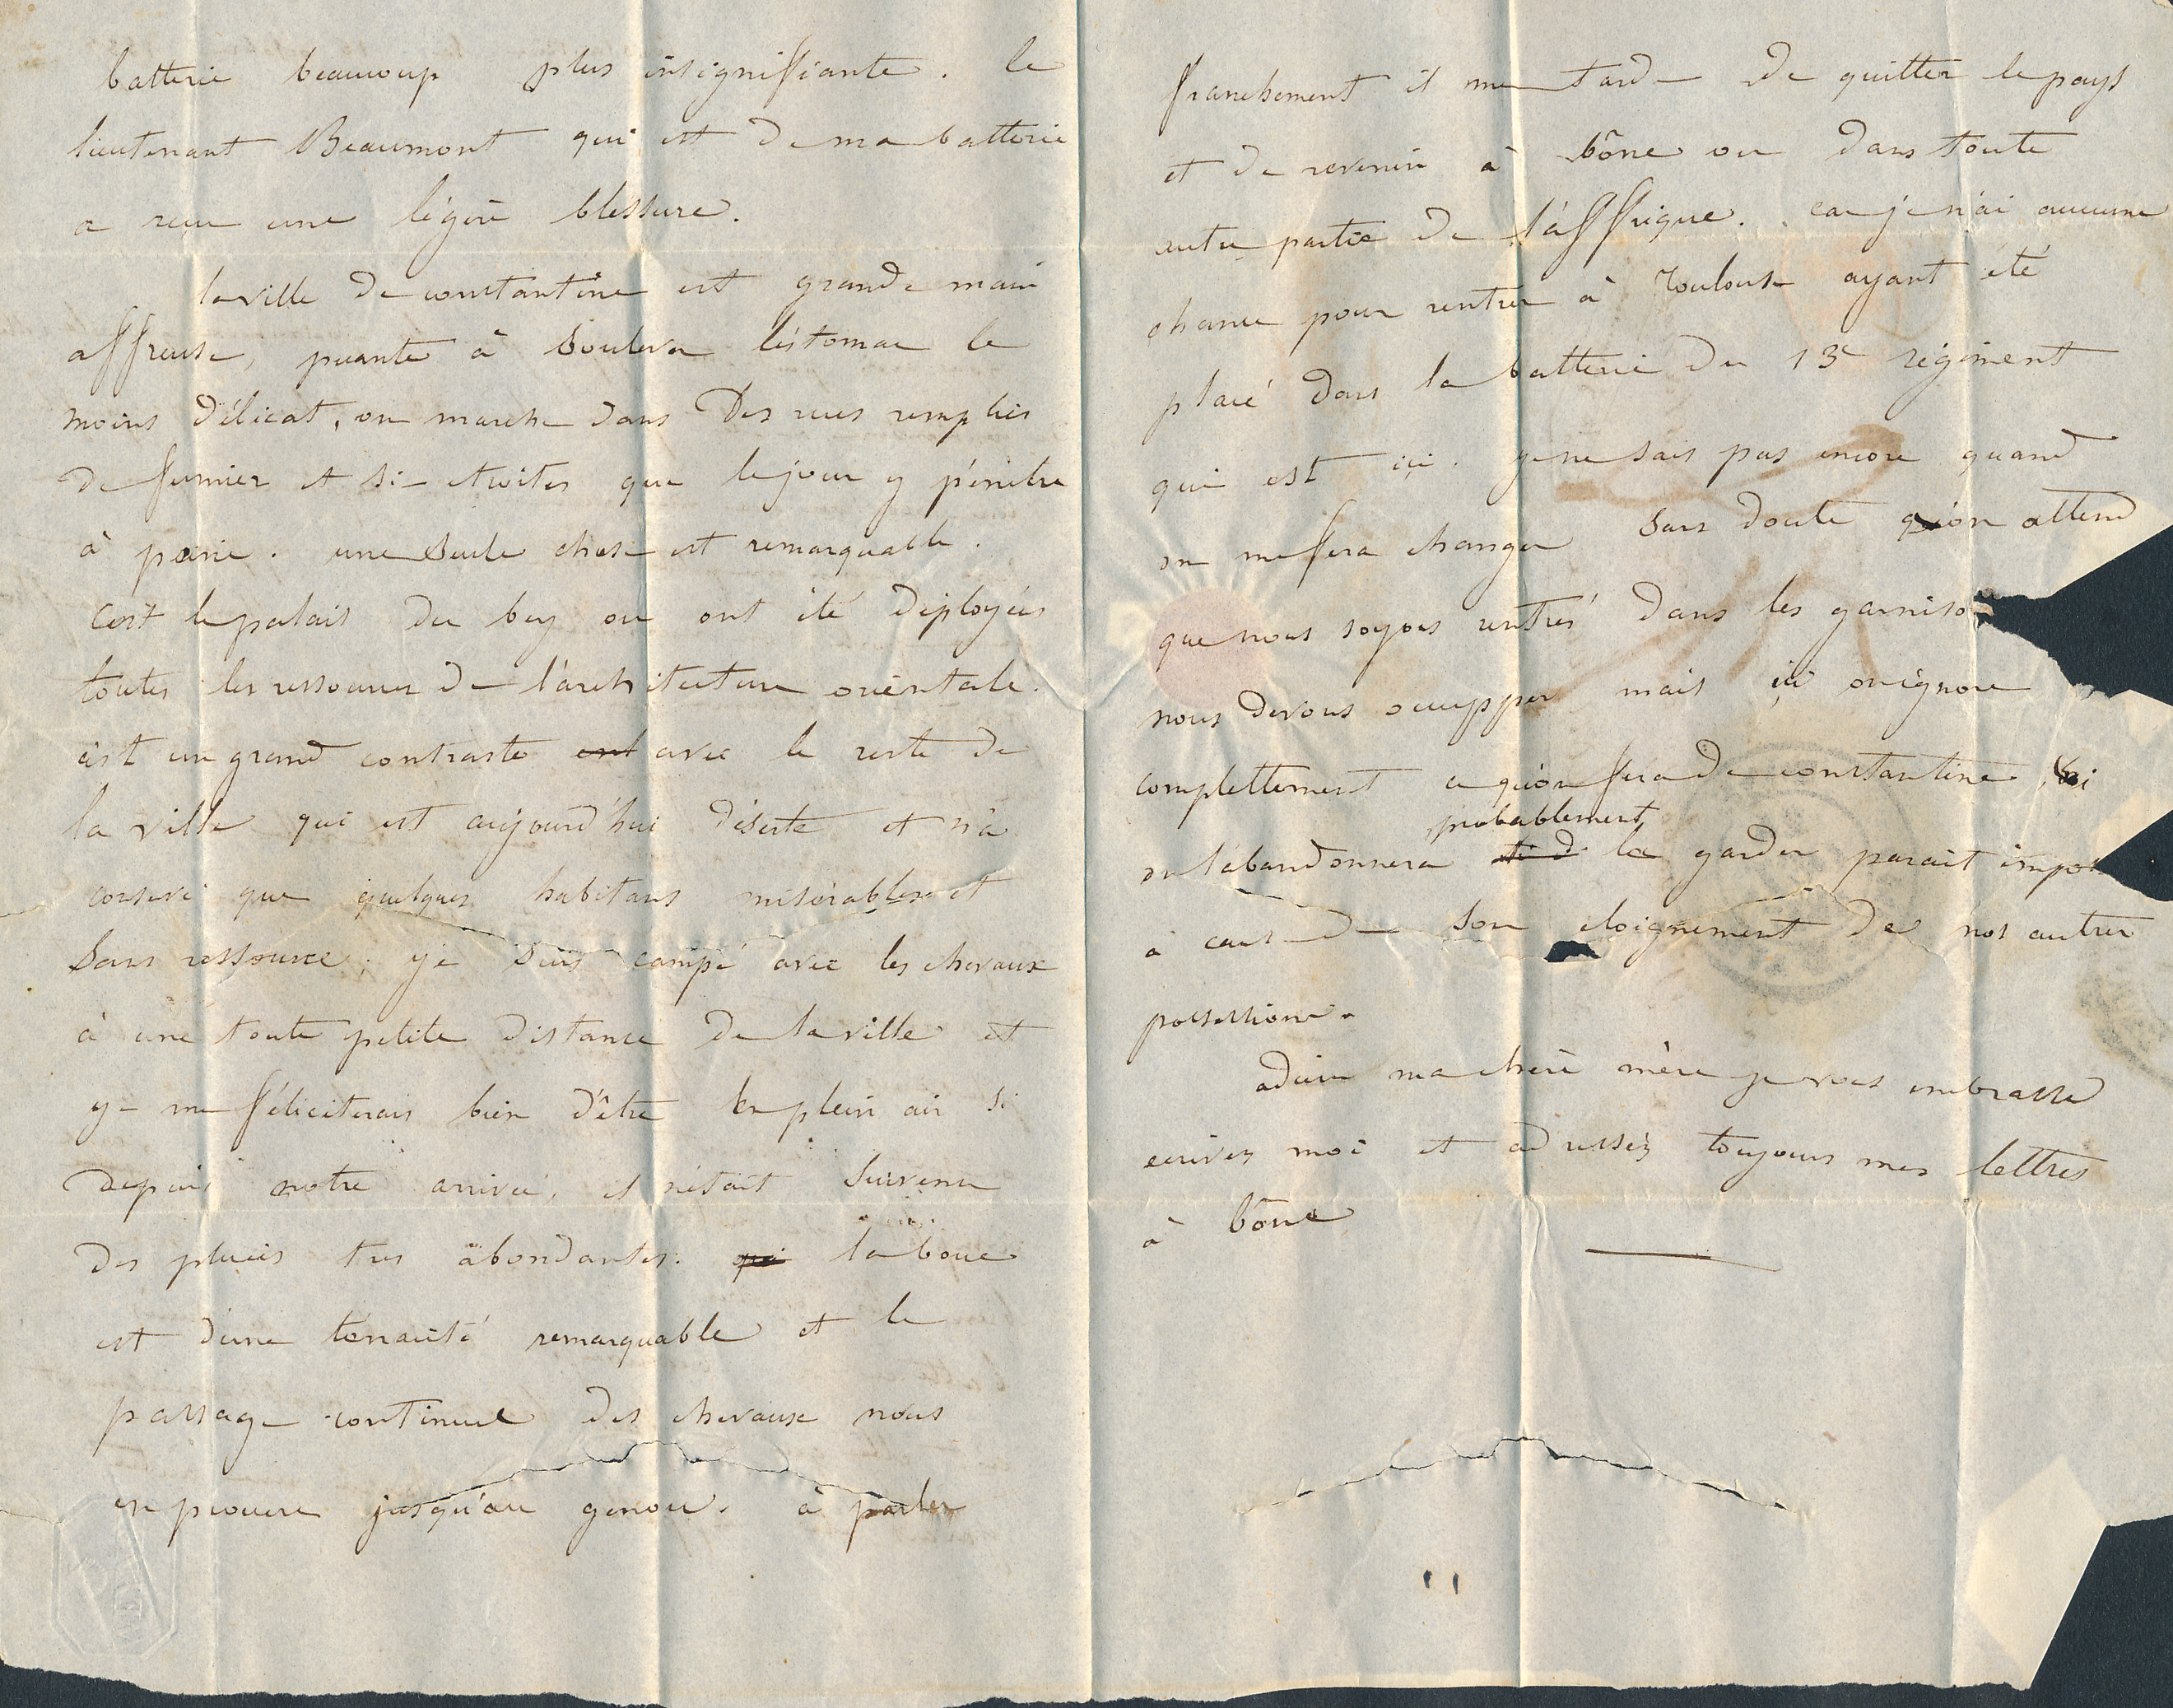 batterie beaucoup plus insignifiante. le
lieutenant Beaumont qui est de ma batterie
a recu une légère blessure.
la ville de constantine est grande mais
affreuse, puante à soulever l'estomac le
moins délicat, on marche dans des rues remplies
de fumier et si etroites que le jour y pénètre
à peine. une seule chose est remarquable.
c'est le palais du bey ou ont été déployées
toutes les ressources de l'architecture orientale.
c'est un grand contraste avec le reste de
la ville qui est aujourd'hui déserte et n'a
conservé que quelques habitans misérables et
sans ressource; je suis campé avec les chevaux
à une toute petite distance de la ville et
je me féliciterais bien d'être en plein air si
depuis notre arrivée, il n'était survenu
des pluies tres abondantes. la boue
est d'une ténacité remarquable et le
passage continuel des chevaux nous
en procure jusqu'au genou. à parler
franchement il me tarde de quitter le pays
et de revenir à bône ou dans toute
autre partie de l'affrique. car je n'ai aucune
chance pour rentrer à Toulouse ayant été
placé dans la batterie du 13e régiment
qui est ici. je ne sais pas encore quand
on me fera changer sans doute qu'on attend
que nous soyons rentrés dans les garniso
nous devons occupper mais ici on ignore
complettement ce qu'on fera de constantine,
probablement
on l'abandonnera la garder parait impos
à cause de son eloignement de nos autres
possessions.
adieu ma chère mère je vous embrasse
ecrivez moi et adressez toujours mes lettres
à bône